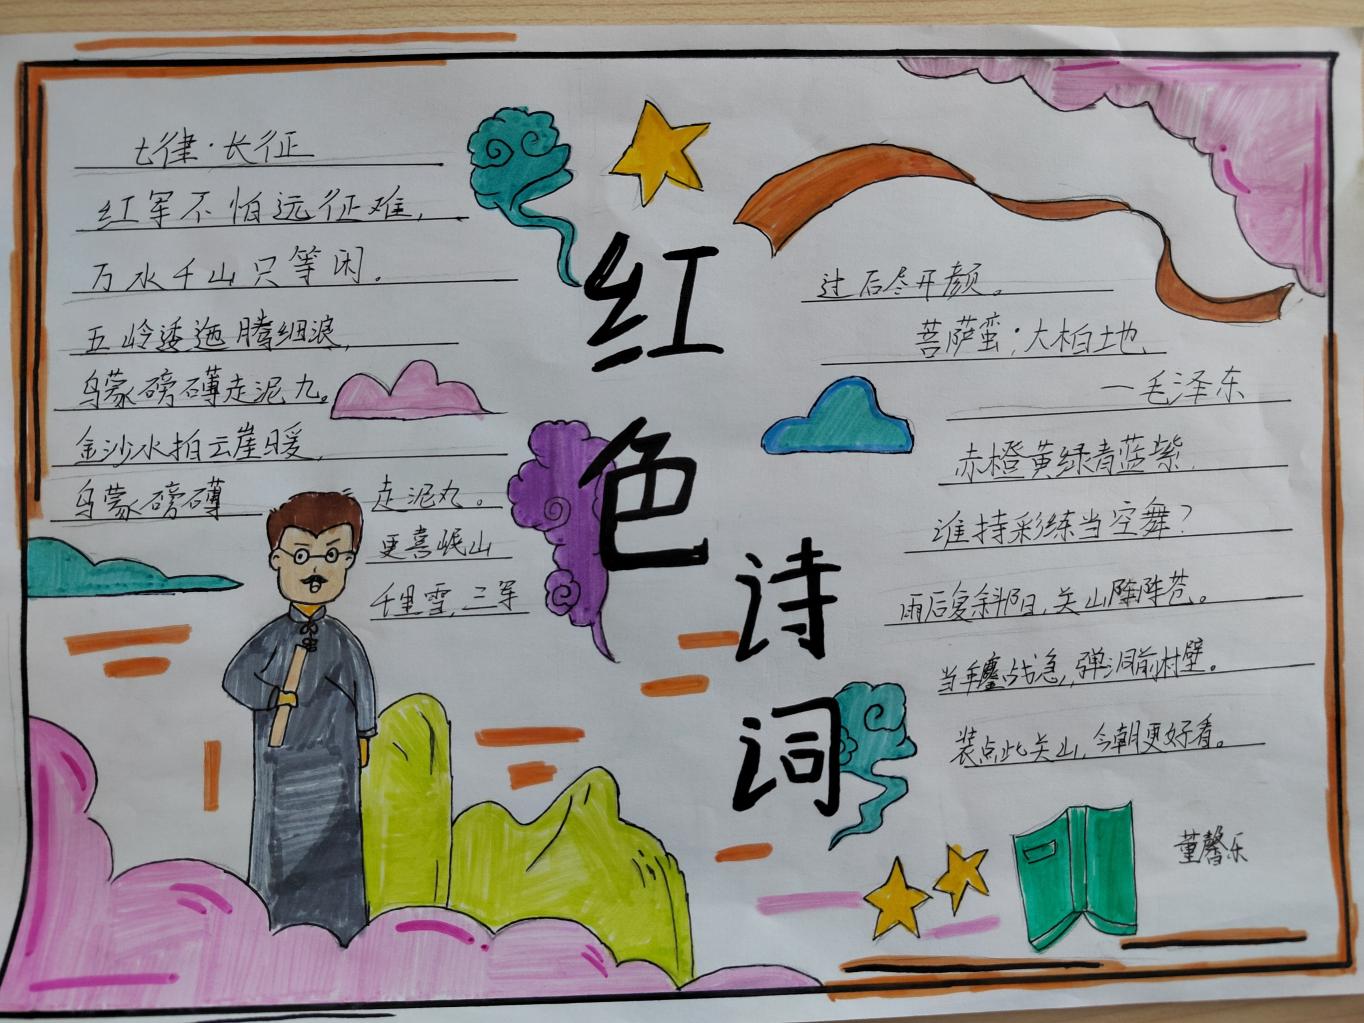 七律·长征
红军不怕远征难,
万水千山只等闲。
五岭逶迤腾细浪,
乌蒙磅礴走泥九。
金沙水拍云崖暖,
乌蒙磅礴 走泥丸。
更喜岷山
千里雪,三军
红色诗词
过后尽开颜。
菩萨蛮;大柏地、
—毛泽东
赤橙黄绿青蓝紫,
谁持彩练当空舞?
雨后复斜阳,关山阵阵苍。
当年鏖战急,弹洞前村壁。
装点此关山,今朝更好看。
董馨乐